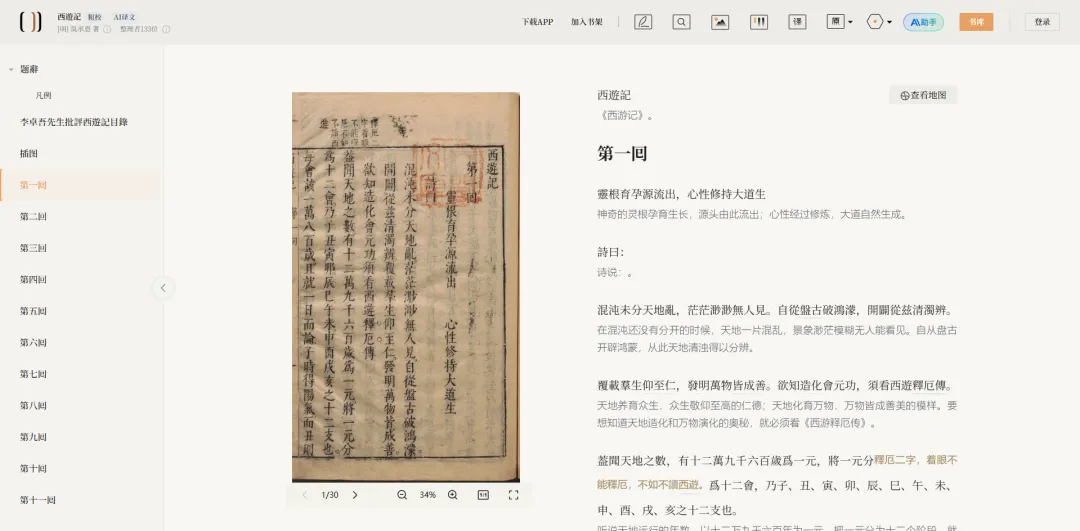 西遊記 粗校 AI译文
[明] 吳承恩 著 整理者1336
下载APP
加入书架
译
原
AI助手
书库
登录
题辭
凡例
李卓吾先生批評西遊記目錄
插图
第一回
第二回
第三回
第四回
第五回
第六回
第七回
第八回
第九回
第十回
第十一回
西遊記
第一回
詩曰
靈根育孕源流出 心性修持大道生
混沌未分天地亂茫茫渺渺無人見自從盤古破鴻濛
開闢從兹清濁辨覆載羣生仰至仁發明萬物皆成善
欲知造化會元功須看西遊釋厄傳
蓋聞天地之數有十二萬九千六百歲爲一元將一元分
爲十二會乃子丑寅卯辰巳午未申酉戌亥之十二支也
每會該一萬八百歲且就一日而論子時得陽氣而丑則
1/30
34%
西遊記
《西游记》。
查看地图
第一回
靈根育孕源流出，心性修持大道生
神奇的灵根孕育生长，源头由此流出；心性经过修炼，大道自然生成。
詩曰：
诗说：。
混沌未分天地亂，茫茫渺渺無人見。自從盤古破鴻濛，開闢從兹清濁辨。
在混沌还没有分开的时候，天地一片混乱，景象渺茫模糊无人能看见。自从盘古
开辟鸿蒙，从此天地清浊得以分辨。
覆載羣生仰至仁，發明萬物皆成善。欲知造化會元功，須看西遊釋厄傳。
天地养育众生，众生敬仰至高的仁德；天地化育万物，万物皆成善美的模样。要
想知道天地造化和万物演化的奥秘，就必须看《西游释厄传》。
蓋聞天地之數，有十二萬九千六百歲爲一元，將一元分釋厄二字，着眼不
能釋厄，不如不讀西遊。爲十二會，乃子、丑、寅、卯、辰、巳、午、未、
申、酉、戌、亥之十二支也。
听说天地运行的年数，以十二万九千六百年为一元，把一元分为十二个阶段，就